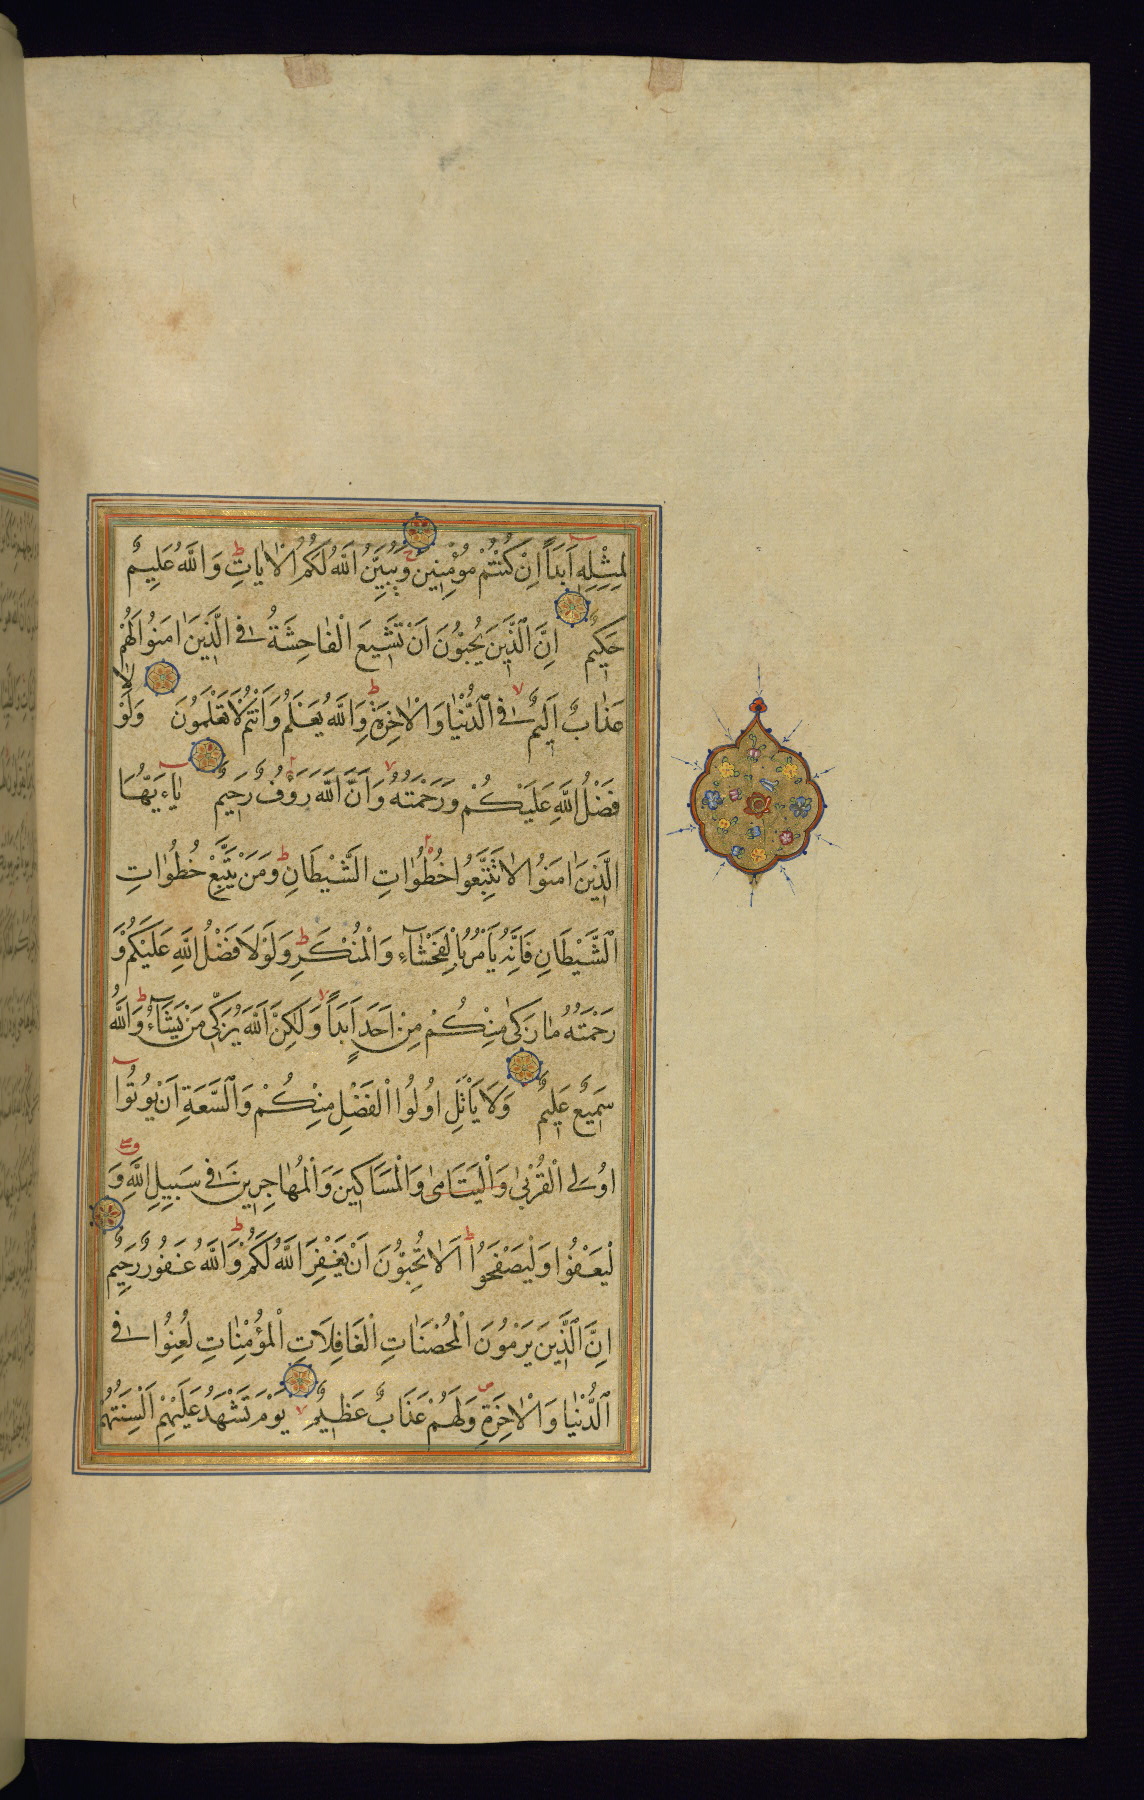 لِمِثْلِهِ اَبَدًا اِنْ كُنْتُمْ مُؤْمِنِينَ وَيُبَيِّنُ اللّٰهُ لَكُمُ الْاٰيَاتِ وَاللّٰهُ عَلِيمٌ
حَكِيمٌ اِنَّ الَّذِينَ يُحِبُّونَ اَنْ تَشِيعَ الْفَاحِشَةُ فِي الَّذِينَ اٰمَنُوا لَهُمْ
عَذَابٌ اَلِيمٌ فِي الدُّنْيَا وَالْاٰخِرَةِ وَاللّٰهُ يَعْلَمُ وَاَنْتُمْ لَا تَعْلَمُونَ وَلَوْ لَا
فَضْلُ اللّٰهِ عَلَيْكُمْ وَرَحْمَتُهُ وَاَنَّ اللّٰهَ رَؤُفٌ رَحِيمٌ يَاءَيُّهَا
الَّذِينَ اٰمَنُوا لَا تَتَّبِعُوا خُطُوَاتِ الشَّيْطَانِ وَمَنْ يَتَّبِعْ خُطُوَاتِ
الشَّيْطَانِ فَاِنَّهُ يَأْمُرُ بِالْفَحْشَاءِ وَالْمُنْكَرِ وَلَوْلَا فَضْلُ اللّٰهِ عَلَيْكُمْ وَ
رَحْمَتُهُ مَا زَكٰى مِنْكُمْ مِنْ اَحَدٍ اَبَدًا وَلٰكِنَّ اللّٰهَ يُزَكِّي مَنْ يَشَاءُ وَاللّٰهُ
سَمِيعٌ عَلِيمٌ وَلَا يَأْتَلِ اُولُوا الْفَضْلِ مِنْكُمْ وَالسَّعَةِ اَنْ يُؤْتُوا
اُولِي الْقُرْبٰى وَالْيَتَامٰى وَالْمَسَاكِينَ وَالْمُهَاجِرِينَ فِي سَبِيلِ اللّٰهِ وَ
لْيَعْفُوا وَلْيَصْفَحُوا اَلَا تُحِبُّونَ اَنْ يَغْفِرَ اللّٰهُ لَكُمْ وَاللّٰهُ غَفُورٌ رَحِيمٌ
اِنَّ الَّذِينَ يَرْمُونَ الْمُحْصَنَاتِ الْغَافِلَاتِ الْمُؤْمِنَاتِ لُعِنُوا فِي
الدُّنْيَا وَالْاٰخِرَةِ وَلَهُمْ عَذَابٌ عَظِيمٌ يَوْمَ تَشْهَدُ عَلَيْهِمْ اَلْسِنَتُهُمْ